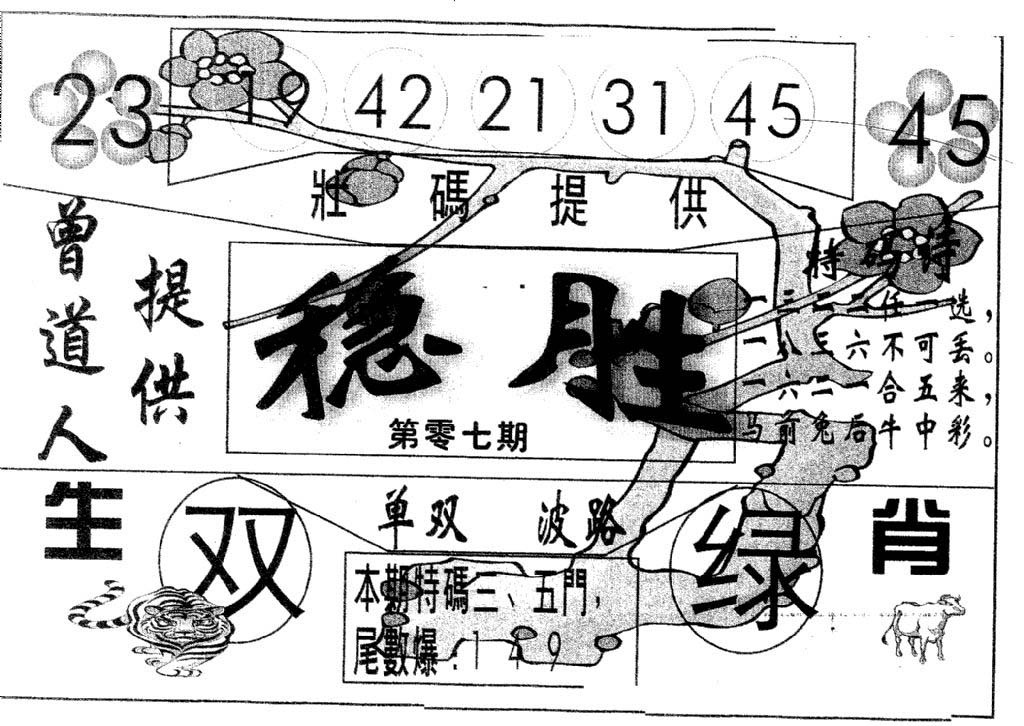 23 19 42 21 31 45 45
壯碼提供
曾道人
提供
稳胜
第零七期
特码诗
一三二六任一选，
一八三六不可丢。
一六二一合五来，
马前兔后牛中彩。
生肖
单双 波路
双 绿
本期特碼三、五門，
尾數爆：1 4 9